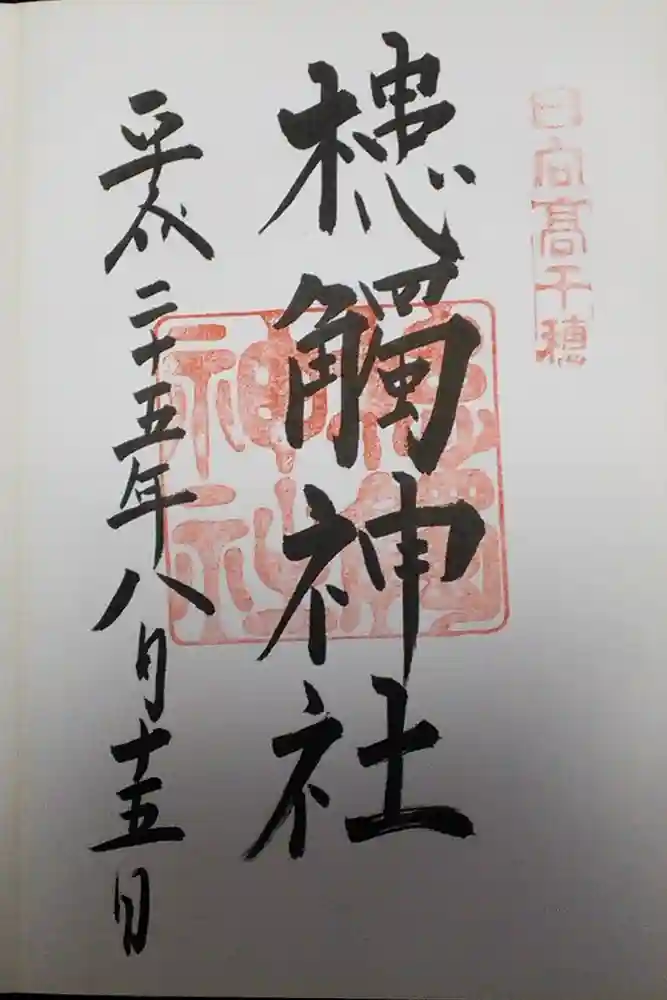 日向髙千穂
槵觸神社
槵觸
神社
平成二十五年八月十五日